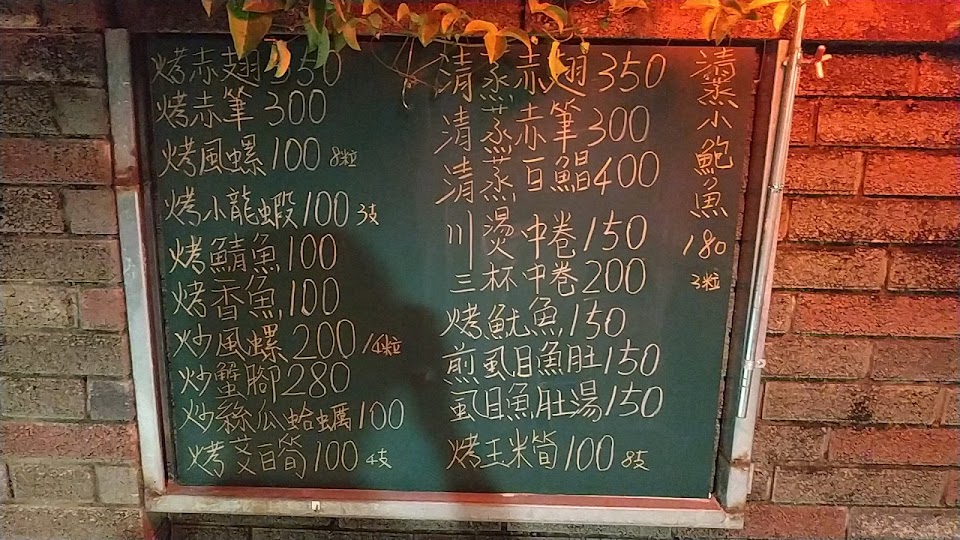 烤赤翅350
烤赤筆300
烤風螺100 8粒
烤小龍蝦100 3支
烤鯖魚100
烤香魚100
炒風螺200/14粒
炒蟹腳280
炒絲瓜蛤蠣100
烤茭白筍100 4支
清蒸赤翅350
清蒸赤筆300
清蒸百鯧400
川燙中卷150
三杯中卷200
烤魷魚150
煎虱目魚肚150
虱目魚肚湯150
烤玉米筍100 8支
清蒸小鮑魚
180
3粒